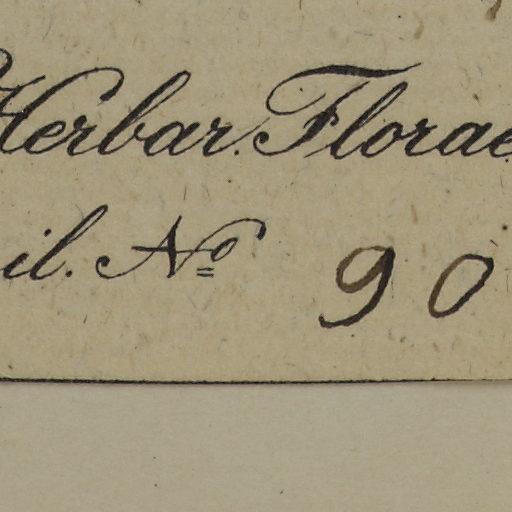 Herbar. Florae
il. Nº 90